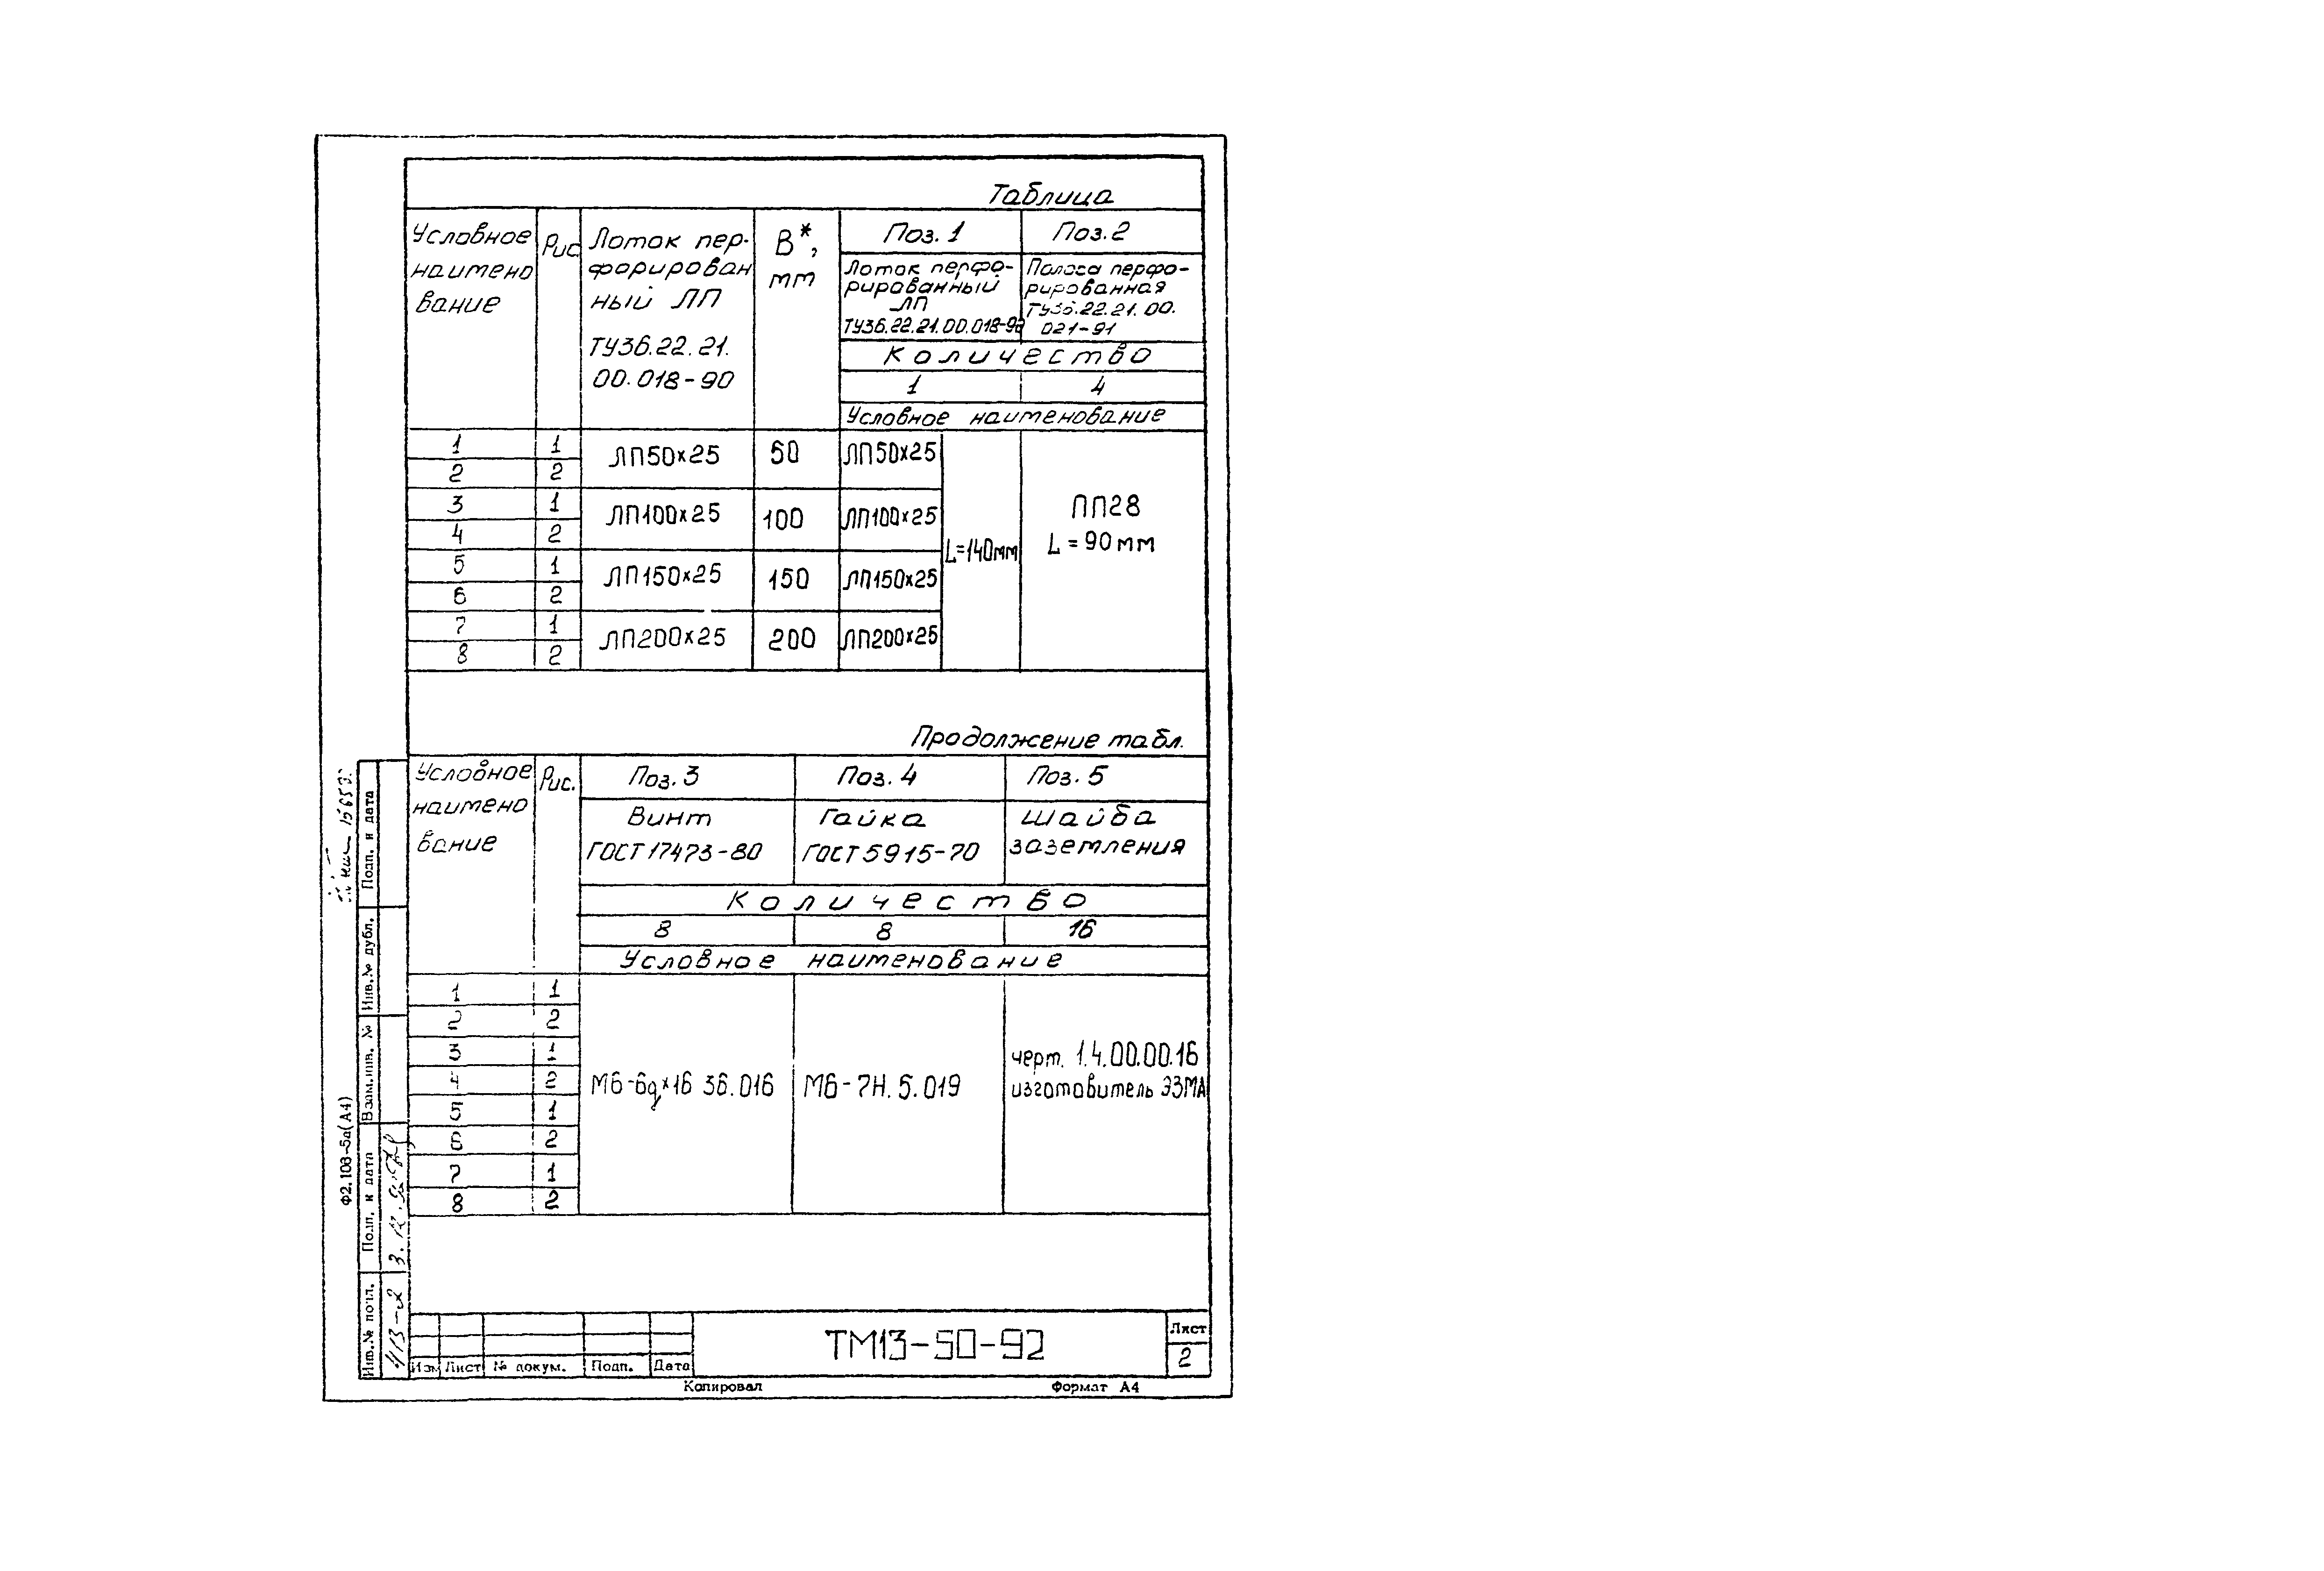 Таблица
Условное
наимено
вание
Рис.
Лоток пер-
форирован
ный ЛП
ТУ36.22.21.
00.018-90
В*,
мм
Поз. 1
Поз. 2
Лоток перфо-
рированный
ЛП
ТУ36.22.21.00.018-90
Полоса перфо-
рированная
ТУ36.22.21.00.
021-91
Количество
1 4
Условное наименование
1 1 ЛП50х25 50 ЛП50х25
2 2
3 1 ЛП100х25 100 ЛП100х25
4 2
5 1 ЛП150х25 150 ЛП150х25
6 2
7 1 ЛП200х25 200 ЛП200х25
8 2
L=140мм
ПП28
L = 90 мм
Продолжение табл.
Условное
наимено
вание
Рис.
Поз. 3
Поз. 4
Поз. 5
Винт
ГОСТ 17473-80
Гайка
ГОСТ 5915-70
Шайба
заземления
Количество
8 8 16
Условное наименование
1 1
2 2
3 1
4 2
5 1
6 2
7 1
8 2
М6-6g×16 36.016
М6-7Н.5.019
черт. 1.4.00.00.16
изготовитель ЭЗМА
Подп. и дата
Инв.№ дубл.
Взам.инв. №
Подп. и дата
Инв.№ подл.
413-2
Ф2.106-5а(А4)
Изм Лист № докум. Подп. Дата
ТМ13-90-92
Лист
2
Копировал
Формат А4